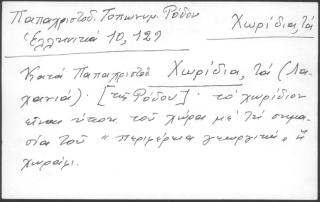 Παπαχριστοδ. Τοπωνυμ. Ρόδου
Χωρίδια, τά
Ἑλληνικά 10, 129
Κατά Παπαχριστοδ Χωρίδια, τά (Λα-
χανιά) · [τῆς Ρόδου] · τό χωρίδιον
εἶναι τοῦ χώρα μέ τή σημα-
σία τοῦ « περιμέρεια γεωργική » ἤ
χωράφι.